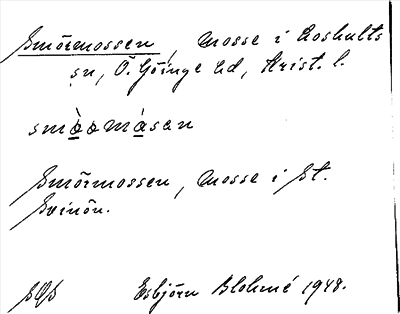 Smörmossen, Mosse i Loshults
sn, Ö. Göinge hd, Krist. l.
Smörmossen, mosse i St.
Svinön.
Esbjörn Blohmé 1948.